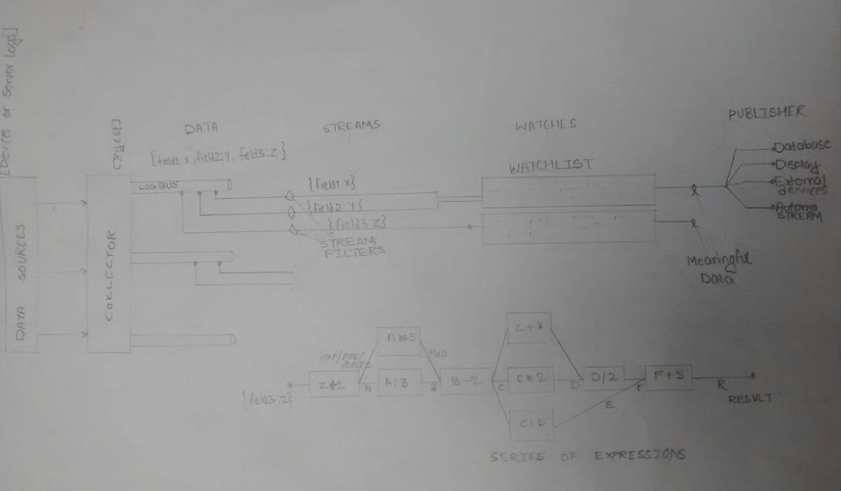 [Devices or Server Logs]
DATA SOURCES
[Ingest]
COLLECTOR
DATA
{field1:x, field2:y, field3:z}
LOG BUS
STREAMS
{field1:x}
{field2:y}
{field3:z}
STREAM
FILTERS
WATCHES
WATCHLIST
PUBLISHER
Database
Display
External
devices
STREAM
Meaningful
Data
{field3:z}
A
A/3
B
B-2
C
C*2
D
D/2
E
F
F+5
R
RESULT
SERIES OF EXPRESSIONS